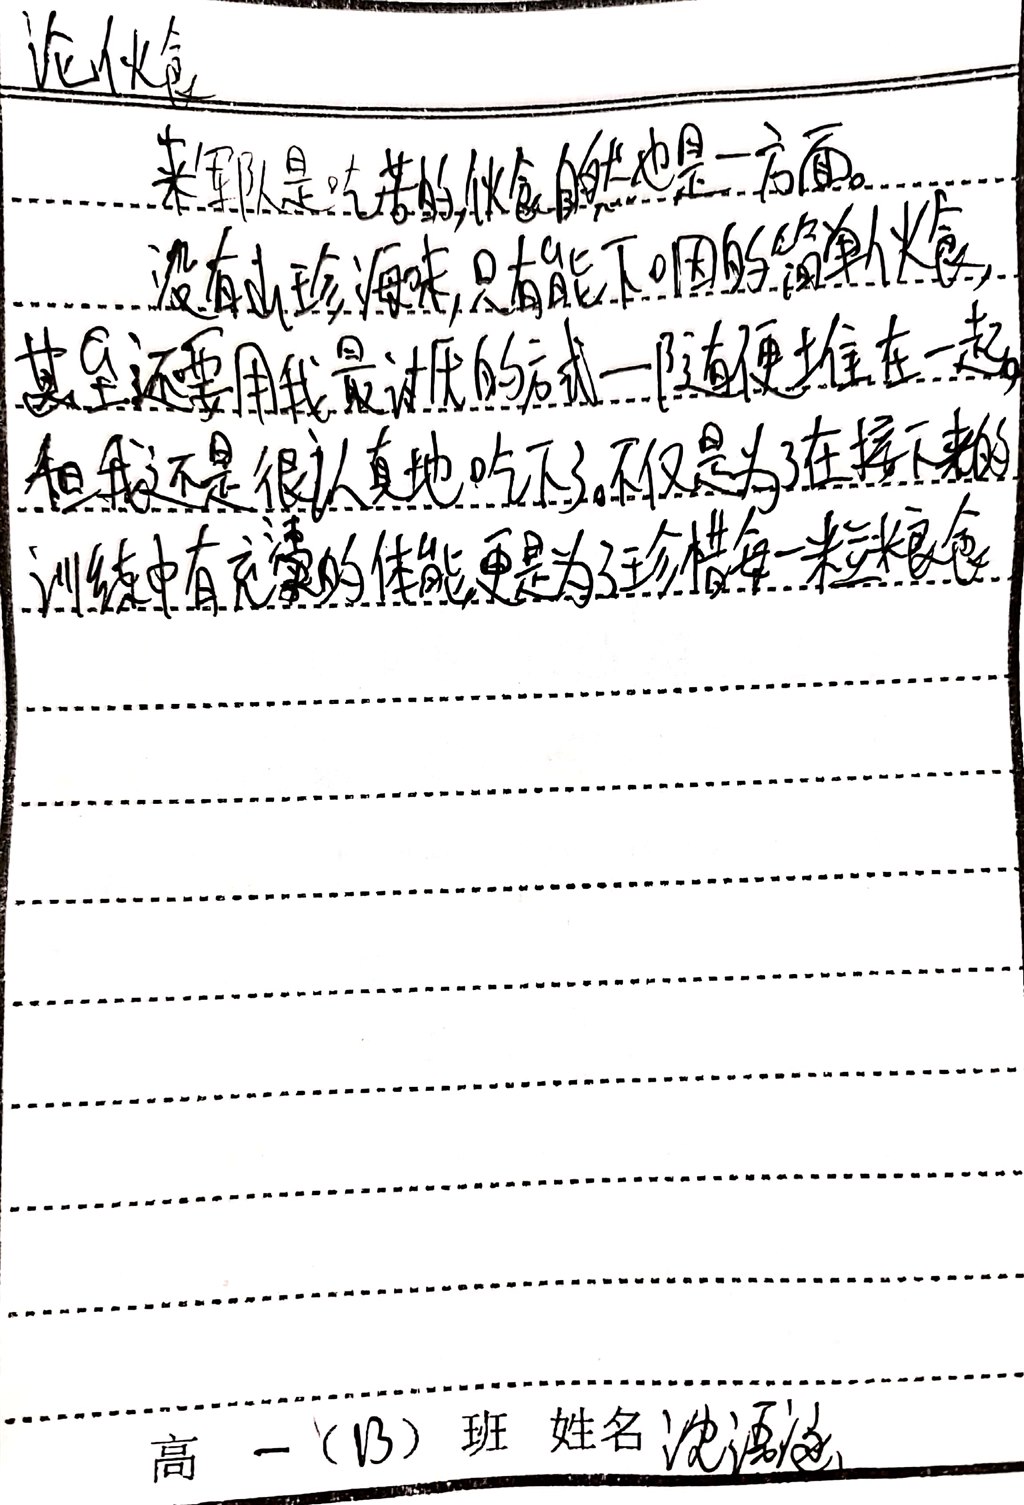 论伙食
来军队是吃苦的,伙食自然也是一方面。
没有山珍海味,只有能下咽的简单伙食,
甚至还要用我最讨厌的方式—随便堆在一起。
但我还是很认真地吃下了。不仅是为了在接下来的
训练中有充沛的体能,更是为了珍惜每一粒粮食
高一(13)班 姓名 沈语